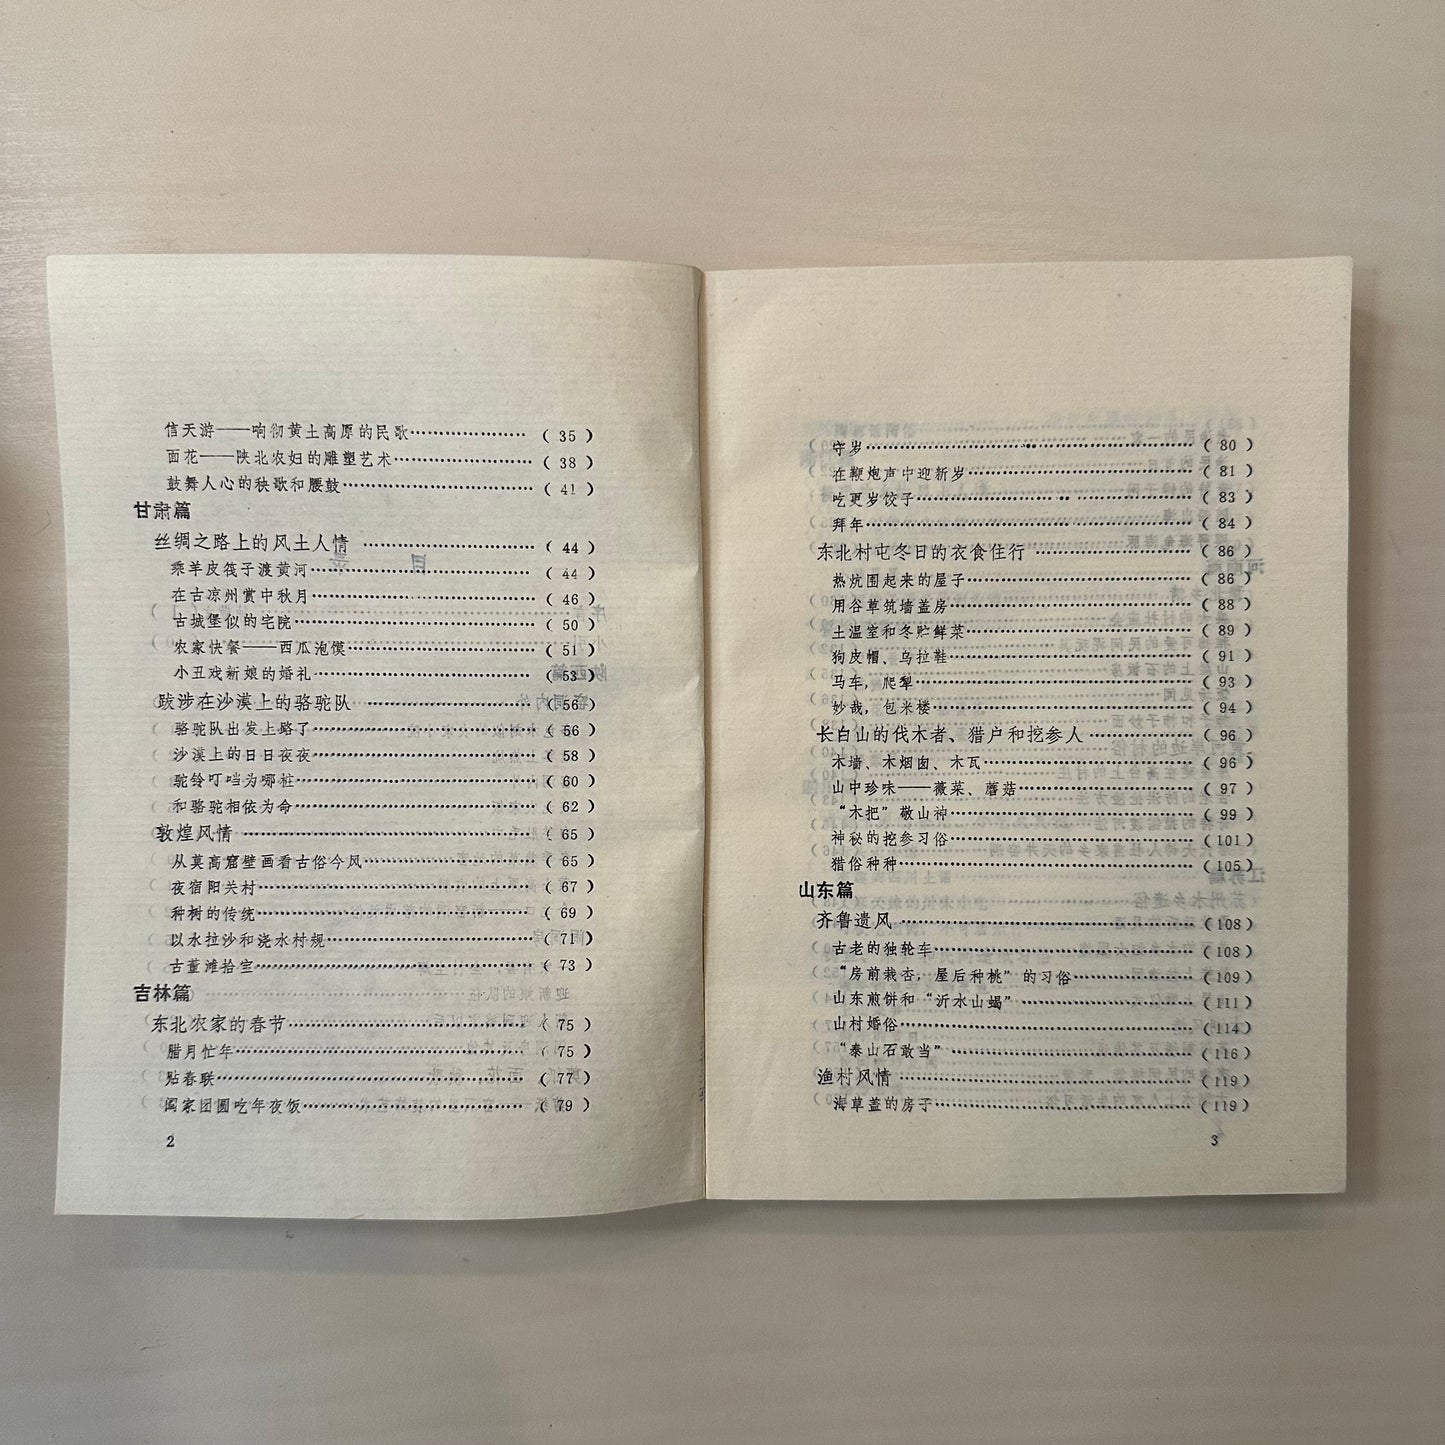 信天游——响彻黄土高原的民歌………………（35）
面花——陕北农妇的雕塑艺术………………（38）
鼓舞人心的秧歌和腰鼓………………（41）
甘肃篇
丝绸之路上的风土人情………………（44）
乘羊皮筏子渡黄河………………（44）
在古凉州赏中秋月………………（46）
古城堡似的宅院………………（50）
农家快餐——西瓜泡馍………………（51）
小丑戏新娘的婚礼………………（53）
跋涉在沙漠上的骆驼队………………（56）
骆驼队出发上路了………………（56）
沙漠上的日日夜夜………………（58）
驼铃叮咯为哪桩………………（60）
和骆驼相依为命………………（62）
敦煌风情………………（65）
从莫高窟壁画看古俗今风………………（65）
夜宿阳关村………………（67）
种树的传统………………（69）
以水拉沙和浇水村规………………（71）
古董滩拾宝………………（73）
吉林篇
东北农家的春节………………（75）
腊月忙年………………（75）
贴春联………………（77）
阖家团圆吃年夜饭………………（79）
2
守岁………………（80）
在鞭炮声中迎新岁………………（81）
吃更岁饺子………………（83）
拜年………………（84）
东北村屯冬日的衣食住行………………（86）
热炕围起来的屋子………………（86）
用谷草筑墙盖房………………（88）
土温室和冬贮鲜菜………………（89）
狗皮帽、乌拉鞋………………（91）
马车，爬犁………………（93）
妙哉，包米楼………………（94）
长白山的伐木者、猎户和挖参人………………（96）
木墙、木烟囱、木瓦………………（96）
山中珍味——薇菜、蘑菇………………（97）
“木把”敬山神………………（99）
神秘的挖参习俗………………（101）
猎俗种种………………（105）
山东篇
齐鲁遗风………………（108）
古老的独轮车………………（108）
“房前栽杏，屋后种桃”的习俗………………（109）
山东煎饼和“沂水山蝎”………………（111）
山村婚俗………………（114）
“泰山石敢当”………………（116）
渔村风情………………（119）
海草盖的房子………………（119）
3